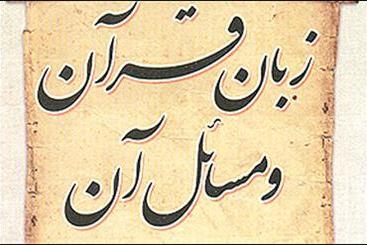 زبان قرآن
و مسائل آن